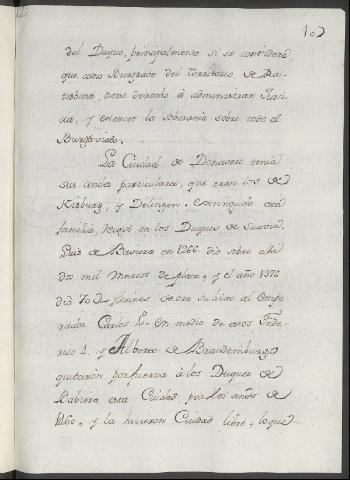 107
del Duque, principalmente si se considera,
que como Burgrave del territorio de Ra-
tisbona, tiene derecho á administrar Justi-
cia, y exercer la soberania sobre todo el
Burgraviato.
La Ciudad de Donavert tenia
sus Condes particulares, que eran los de
Kisburg, y Delingen. Extinguida esta
familia, recayó en los Duques de Suavia.
Luis de Baviera en 1266 dio sobre ella
dos mil Marcos de plata, y el año 1376
dió florines de oro su hixo al Empe-
rador Carlos En medio de esto Fede-
rico y Alberto de Brandemburgo
quitaron por fuerza à los Duques de
Babiera esta Ciudad por los años de
1460, y la hicieron Ciudad libre, lo que